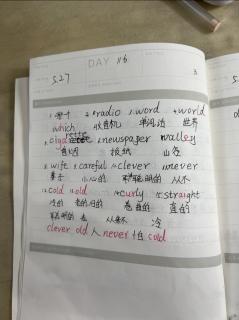 DAY 116
5.27
1.哪个 2.radio 3.word 4.world
which 收音机 单词, 话 世界
5.cigarette 6.newspaper 7.valley
香烟 报纸 山谷
8.wife 9.careful 10.clever 11.never
妻子 小心的 聪明的 从不
12.cold 13.old 14.curly 15.straight
冷的 老的, 旧的 卷曲的 直的
聪明的 老 从不 冷
clever old 人 never 怕 cold